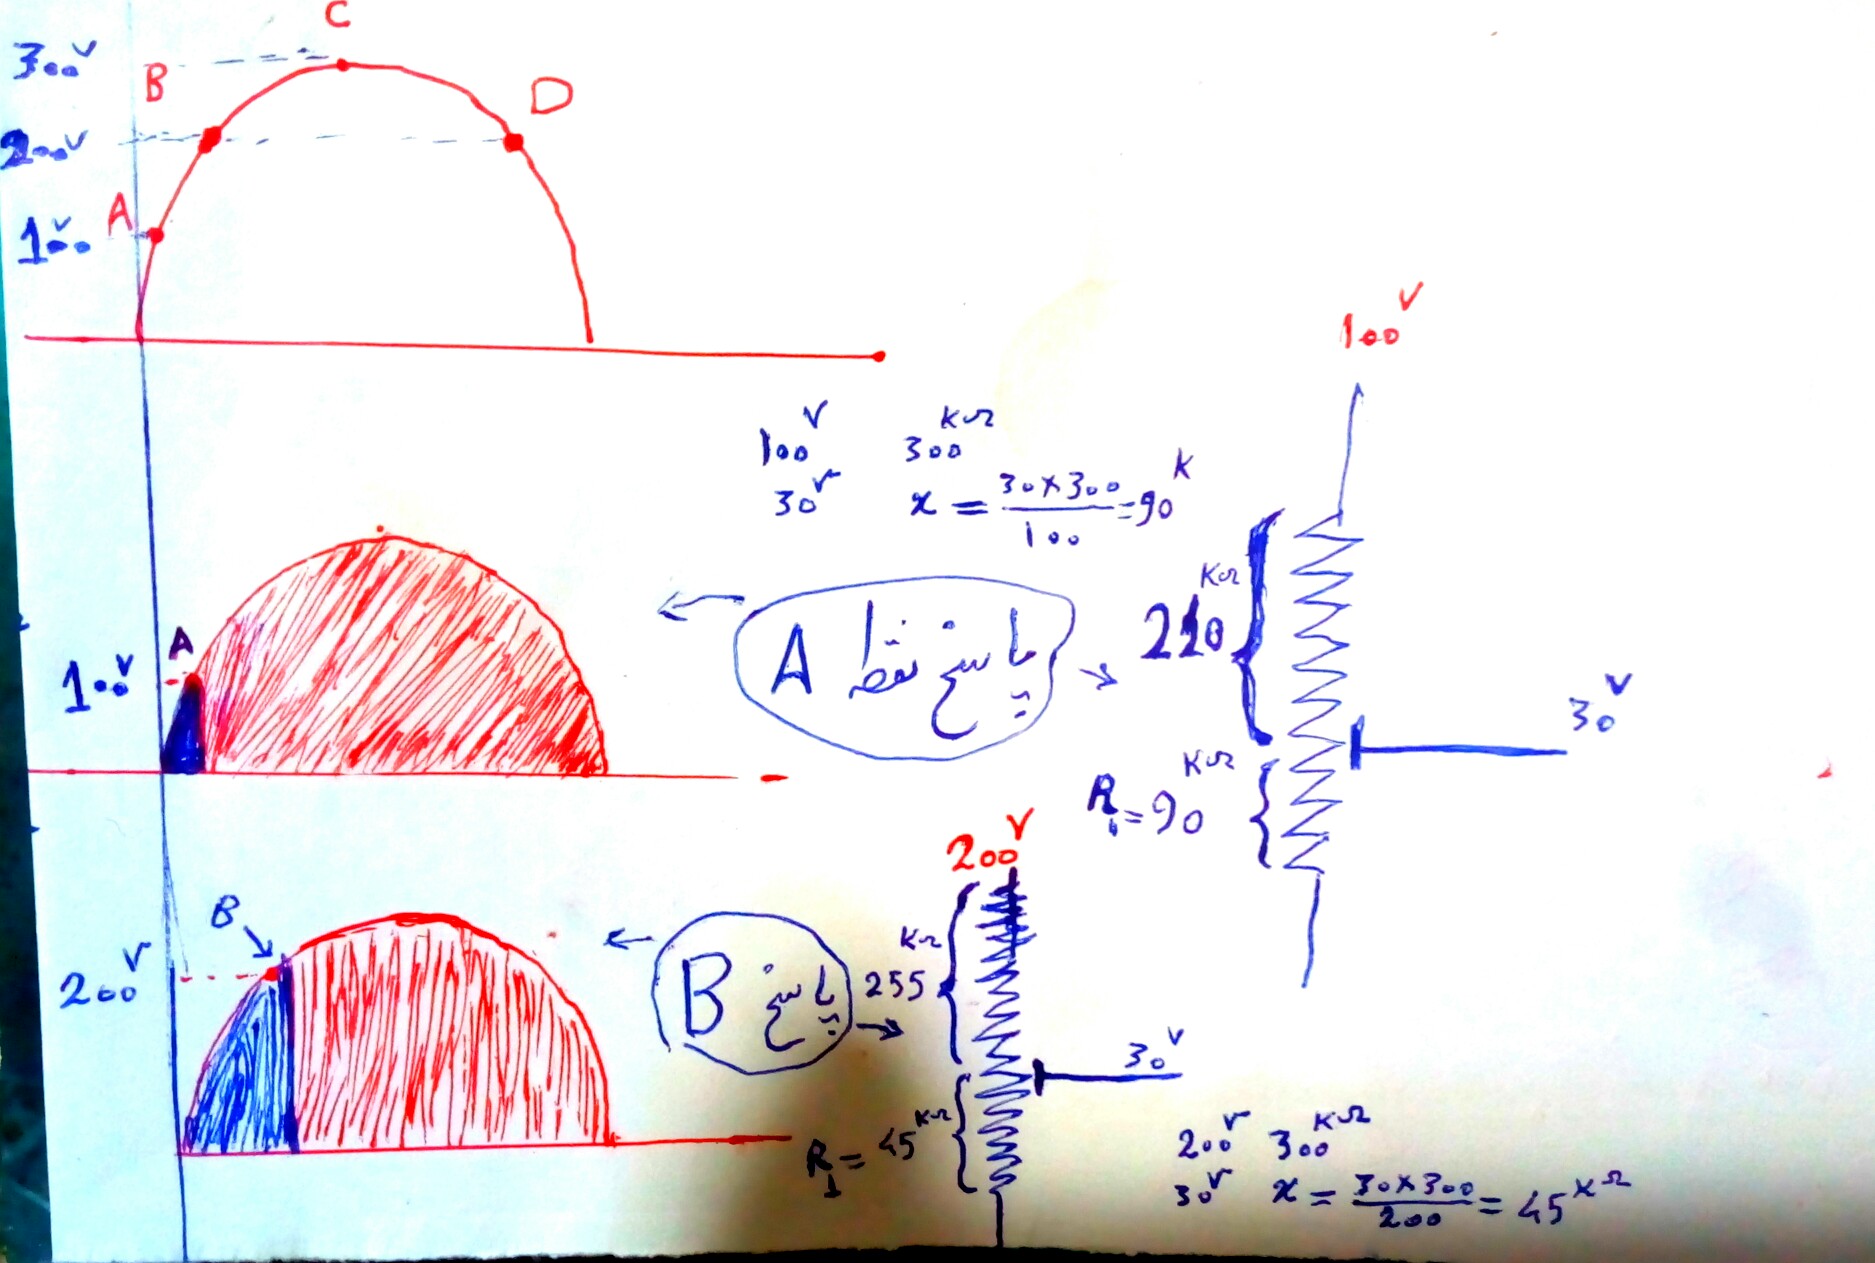 C
300V
B
D
200V
A
100V
100V
100V 300KΩ
30V x = 30×300/100 = 90K
KΩ
210
A
100V
پاسخ نقطه A
30V
KΩ
R1 = 90
200V
B
200V
پاسخ B
KΩ
255
30V
R1 = 45KΩ
200V 300KΩ
30V x = 30×300/200 = 45KΩ